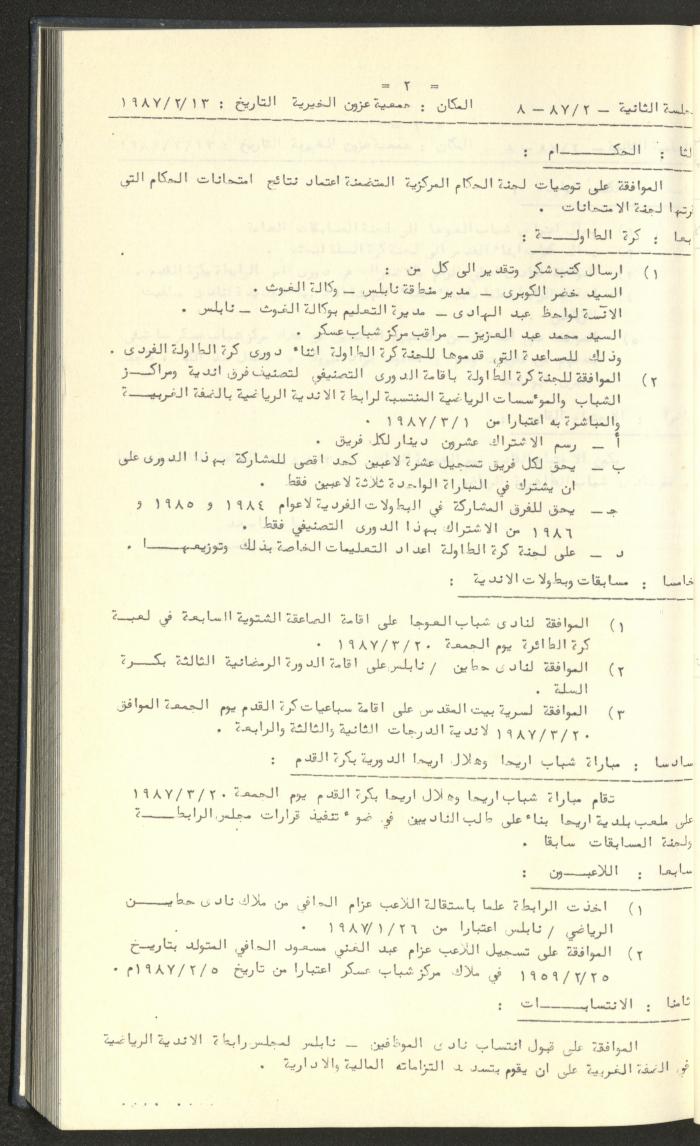 = ٢ =
جلسة الثانية – ٨٧/٢ – ٨ المكان : جمعية عزون الخيرية التاريخ : ١٩٨٧/٢/١٣
لثا : الحكــــــام :
الموافقة على توصيات لجنة الحكام المركزية المتضمنة اعتماد نتائج امتحانات الحكام التى
رتها لجنة الامتحانات .
بعا : كرة الطاولــــة :
١) ارسال كتب شكر وتقدير الى كل من :
السيد خضر الكوبرى – مدير منطقة نابلس – وكالة الغوث .
الآنسة لواحظ عبد الهادى – مديرة التعليم بوكالة الغوث – نابلس .
السيد محمد عبد العزيز – مراقب مركز شباب عسكر .
وذلك للمساعدة التي قدموها للجنة كرة الطاولة اثناء دورى كرة الطاولة الفردى .
٢) الموافقة للجنة كرة الطاولة باقامة الدورى التصنيفي لتصنيف فرق اندية ومراكــز
الشباب والموءسسات الرياضية المنتسبة لرابطة الاندية الرياضية بالضفة الغربيـــة
والمباشرة به اعتبارا من ١٩٨٧/٣/١ .
أ – رسم الاشتراك عشرون دينار لكل فريق .
ب – يحق لكل فريق تسجيل عشرة لاعبين كحد اقصى للمشاركة بهذا الدورى على
ان يشترك في المباراة الواحدة ثلاثة لاعبين فقط .
جـ – يحق للفرق المشاركة في البطولات الفردية لاعوام ١٩٨٤ و ١٩٨٥ و
١٩٨٦ من الاشتراك بهذا الدورى التصنيفي فقط .
د – على لجنة كرة الطاولة اعداد التعليمات الخاصة بذلك وتوزيعهــــا .
خامسا : مسابقات وبطولات الاندية :
١) الموافقة لنادى شباب العوجا على اقامة الصاعقة الشتوية السابعة في لعبــة
كرة الطائرة يوم الجمعة ١٩٨٧/٣/٢٠ .
٢) الموافقة لنادى حطين / نابلس على اقامة الدورة الرمضانية الثالثة بكـــرة
السلة .
٣) الموافقة لسرية بيت المقدس على اقامة سباعيات كرة القدم يوم الجمعة الموافق
١٩٨٧/٣/٢٠ لاندية الدرجات الثانية والثالثة والرابعة .
سادسا : مباراة شباب اريحا وهلال اريحا الدورية بكرة القدم :
تقام مباراة شباب اريحا وهلال اريحا بكرة القدم يوم الجمعة ١٩٨٧/٣/٢٠
على ملعب بلدية اريحا بناء على طلب الناديين في ضوء تنفيذ قرارات مجلس الرابطـــة
ولجنة المسابقات سابقا .
سابعا : اللاعبــــون :
١) اخذت الرابطة علما باستقالة اللاعب عزام الحافي من ملاك نادى حطيـــن
الرياضي / نابلس اعتبارا من ١٩٨٧/١/٢٦ .
٢) الموافقة على تسجيل اللاعب عزام عبد الغني مسعود الحافي المتولد بتاريـخ
١٩٥٩/٢/٢٥ في ملاك مركز شباب عسكر اعتبارا من تاريخ ١٩٨٧/٢/٥م .
ثامنا : الانتسابــــات :
الموافقة على قبول انتساب نادى الموظفين – نابلس لمجلس رابطة الاندية الرياضية
في الضفة الغربية على ان يقوم بتسديد التزاماته المالية والادارية .
.... ....